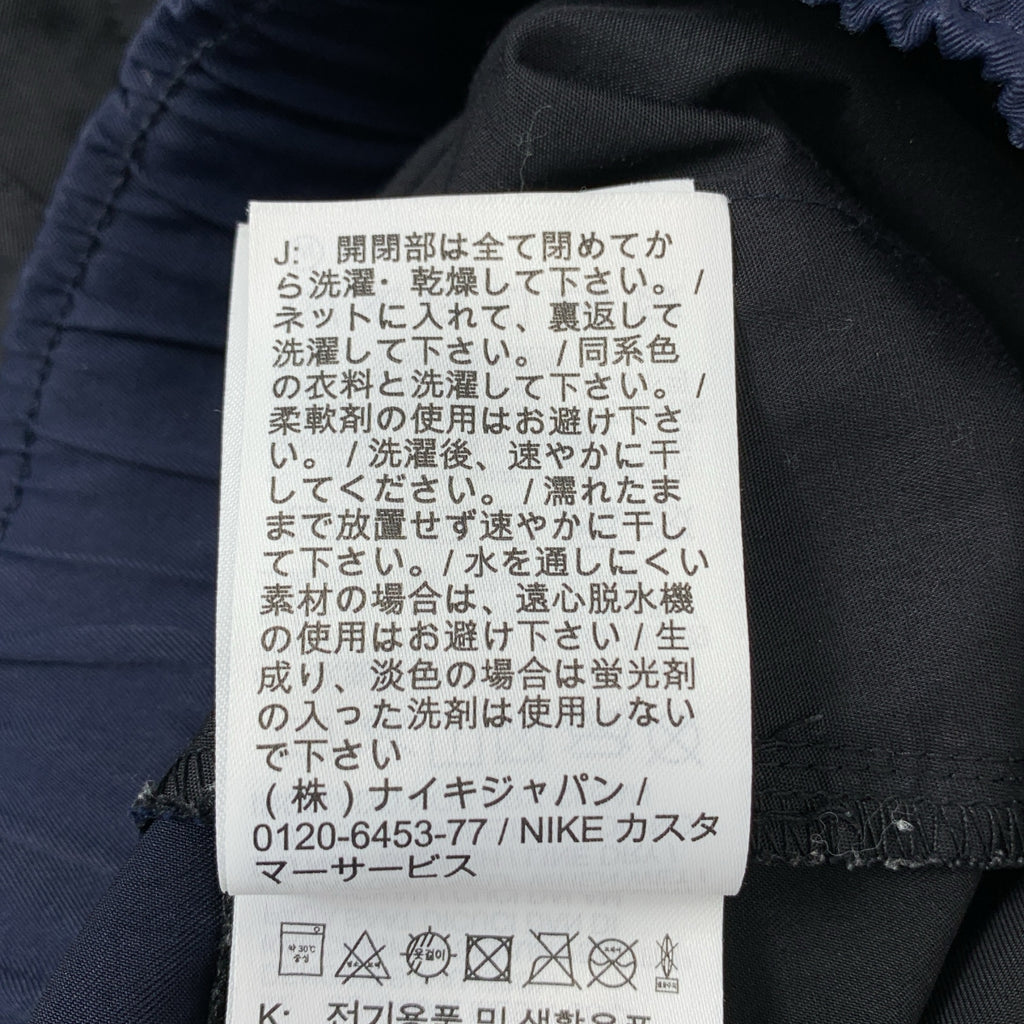 J: 開閉部は全て閉めてか
ら洗濯・乾燥して下さい。 /
ネットに入れて、裏返して
洗濯して下さい。 / 同系色
の衣料と洗濯して下さい。 /
柔軟剤の使用はお避け下さ
い。 / 洗濯後、速やかに干
してください。 / 濡れたま
まで放置せず速やかに干し
て下さい。 / 水を通しにくい
素材の場合は、遠心脱水機
の使用はお避け下さい / 生
成り、淡色の場合は蛍光剤
の入った洗剤は使用しない
で下さい
(株) ナイキジャパン /
0120-6453-77 / NIKE カスタ
マーサービス
약 30℃
중성
옷걸이
K: 전기용품 및 생활용품